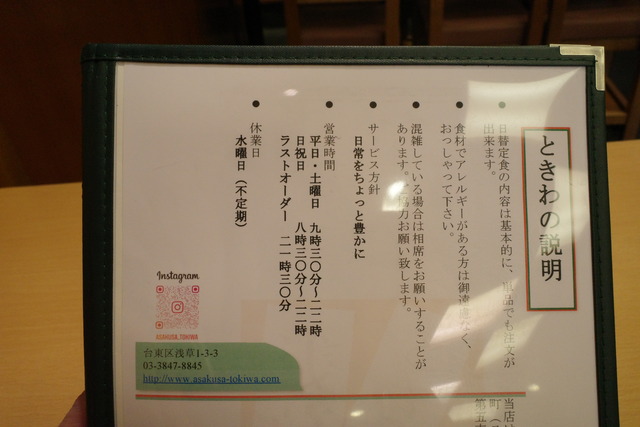 ときわの説明
● 日替定食の内容は基本的に、単品でも注文が
出来ます。
● 食材でアレルギーがある方は御遠慮なく、
おっしゃって下さい。
● 混雑している場合は相席をお願いすることが
あります。ご協力お願い致します。
● サービス方針
日常をちょっと豊かに
● 営業時間
平日・土曜日 九時三〇分〜二二時
日祝日 八時三〇分〜二二時
ラストオーダー 二一時三〇分
● 休業日
水曜日(不定期)
Instagram
ASAKUSA_TOKIWA
台東区浅草1-3-3
03-3847-8845
http://www.asakusa-tokiwa.com
当店は
町(
第五